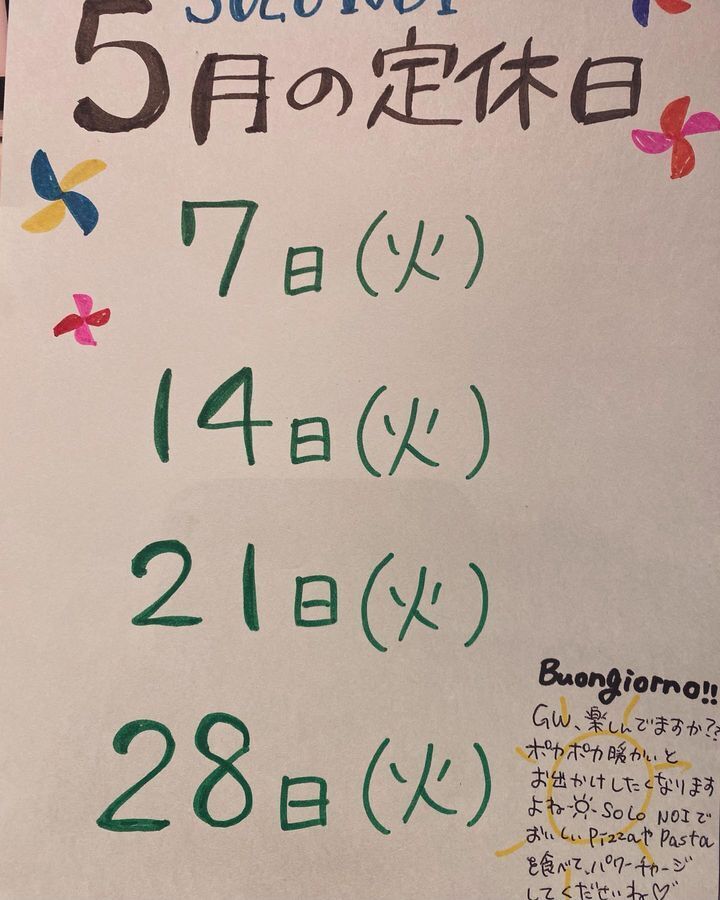 SOLO NOI
5月の定休日
7日(火)
14日(火)
21日(火)
28日(火)
Buongiorno!!
GW、楽しんでますか??
ポカポカ暖かいと
お出かけしたくなります
よね☼ SOLO NOIで
おいしいPizzaやPasta
を食べて、パワーチャージ
してくださいね♡